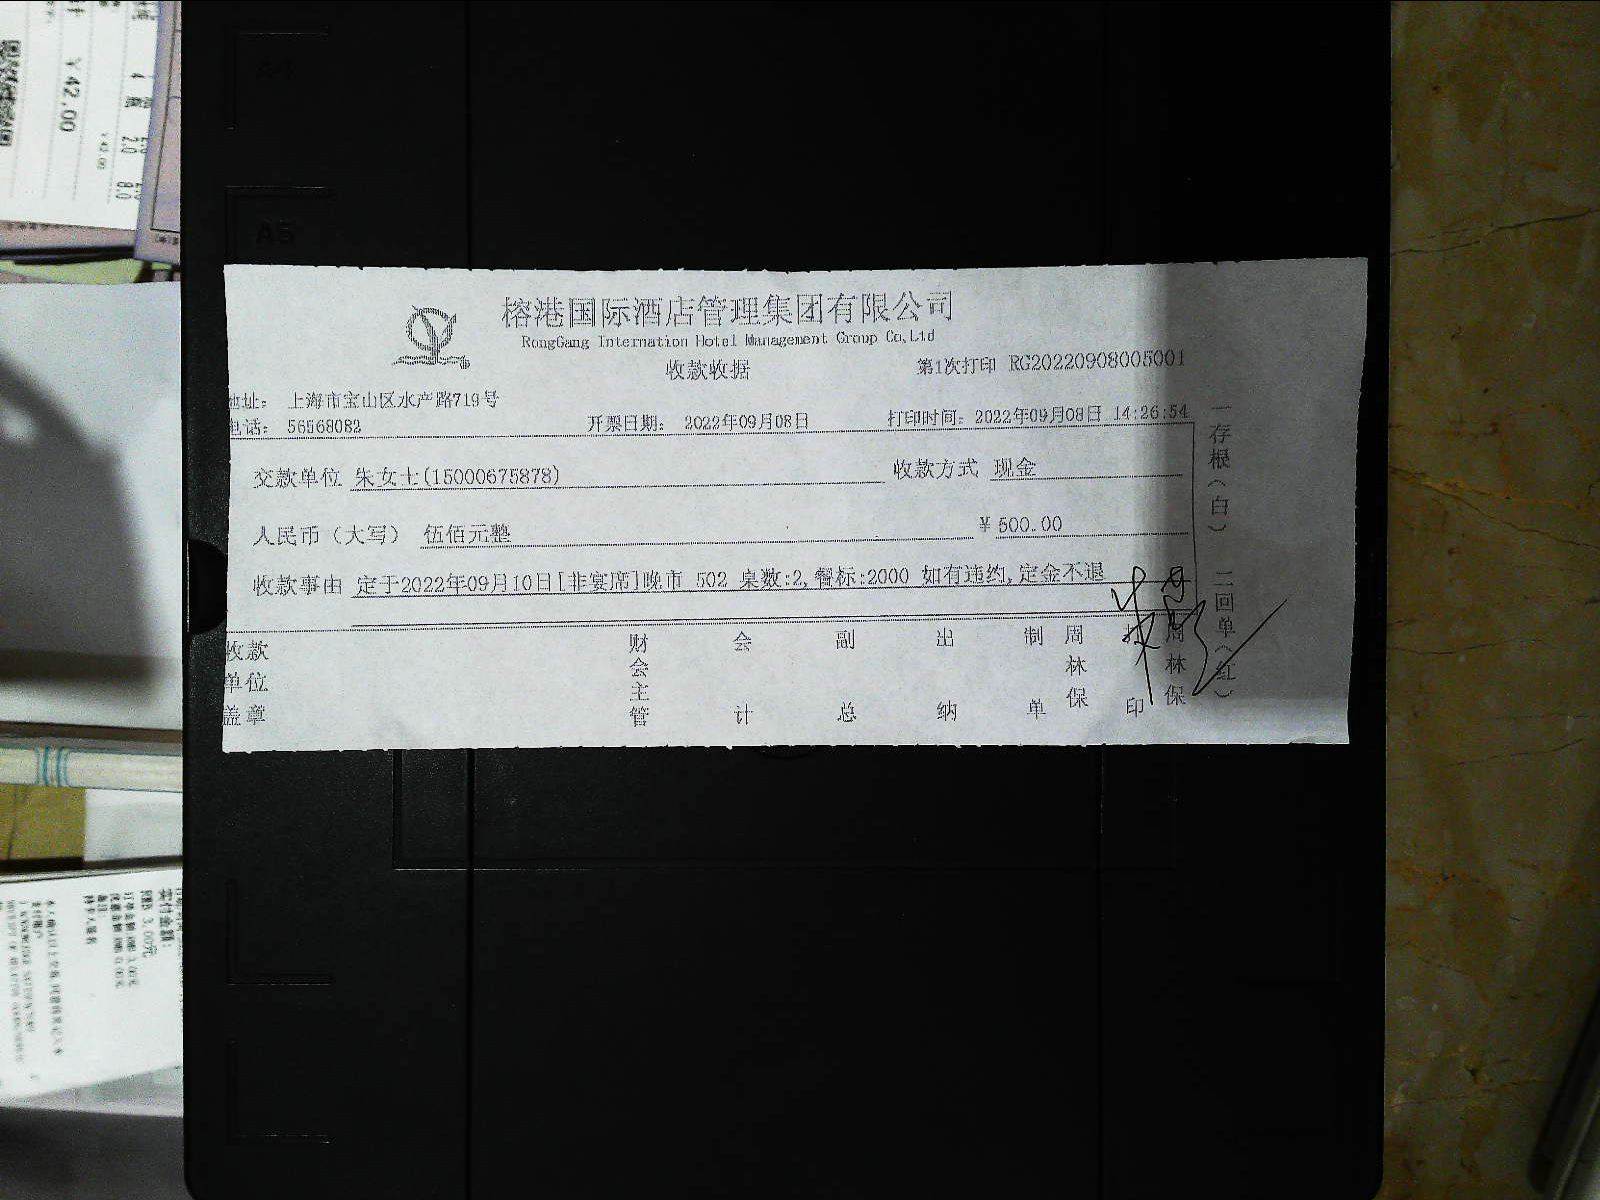 榕港国际酒店管理集团有限公司
RongGang Internation Hotel Management Group Co,Ltd
收款收据
第1次打印 RG20220908005001
地址： 上海市宝山区水产路719号
电话： 56568082
开票日期： 2022年09月08日
打印时间：2022年09月08日 14:26:54
交款单位 朱女士(15000675878)
收款方式 现金
人民币（大写） 伍佰元整
¥500.00
收款事由 定于2022年09月10日[非宴席]晚市 502 桌数:2,餐标:2000 如有违约,定金不退
收款单位盖章
财会主管
会计
副总
出纳
制单
周林保
打印
周林保
一存根（白）
二回单（红）
¥42.00
¥42.00
A5
实付金额：
RMB 3.00元
持卡人签名